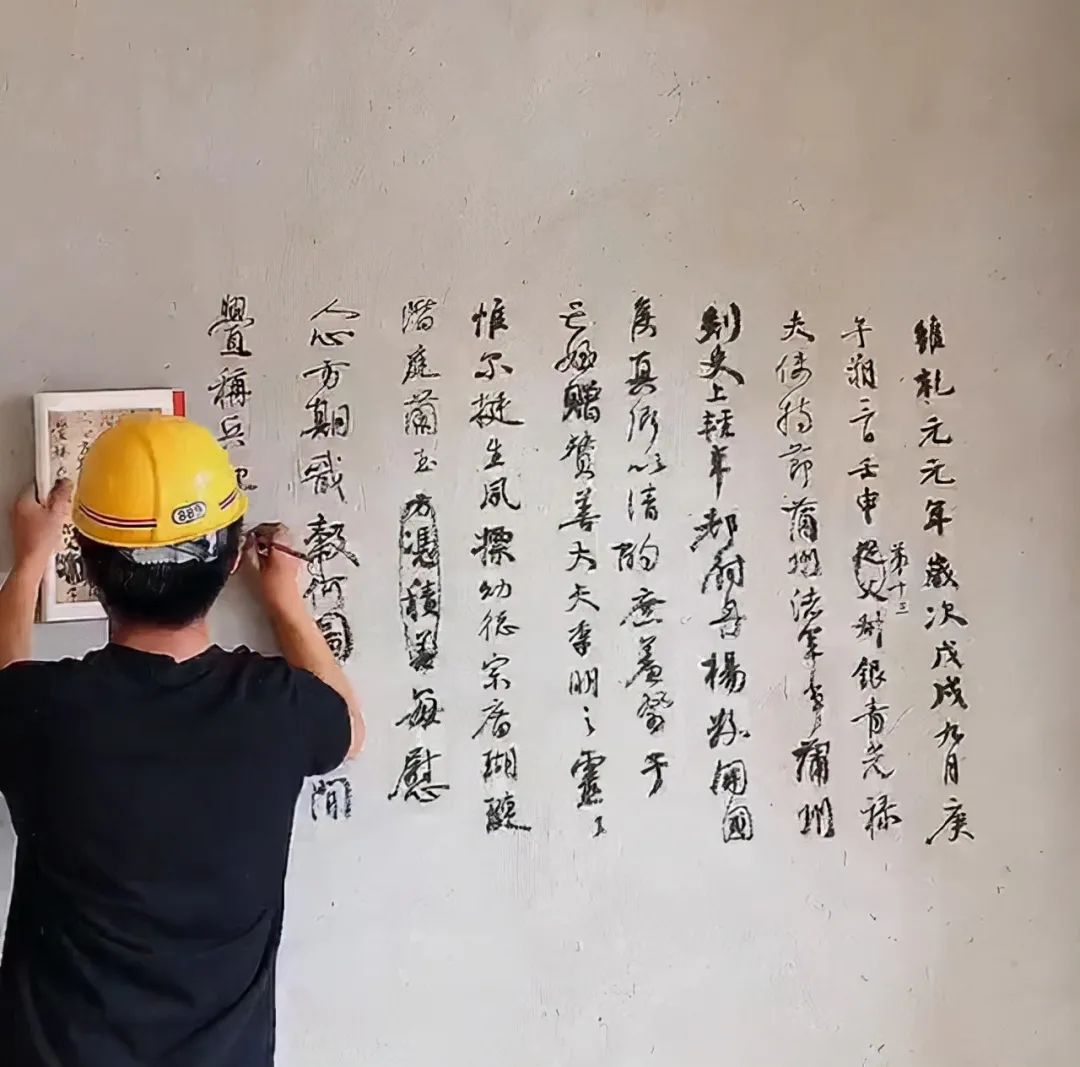 維乾元元年歲次戊戌九月庚
午朔三日壬申第十三從父叔銀青光祿
夫使持節蒲州諸軍事蒲州
刺史上輕車都尉丹楊縣開國
侯真卿以清酌庶羞祭于
亡姪贈贊善大夫季明之靈曰
惟尔挺生夙標幼德宗廟瑚璉
階庭蘭玉方憑積善每慰
人心方期戩穀何圖間
釁稱兵犯
889